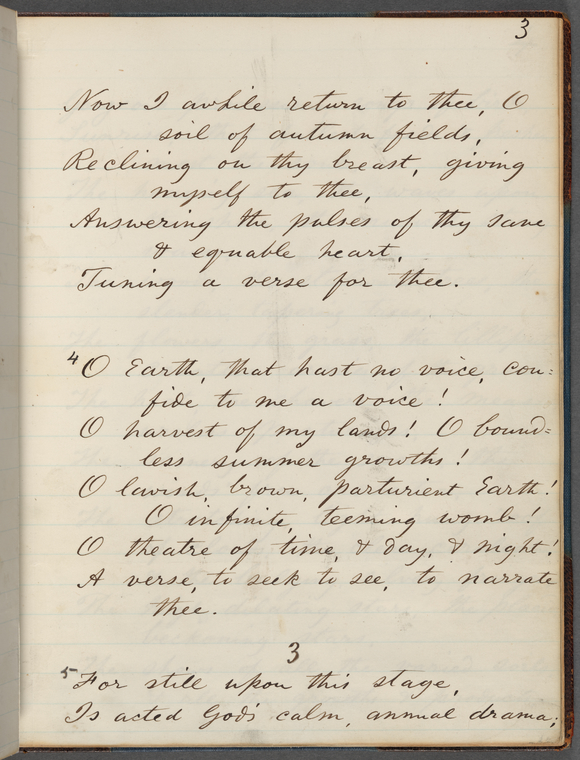 3
Now I awhile return to thee, O
soil of autumn fields,
Reclining on thy breast, giving
myself to thee,
Answering the pulses of thy sane
& equable heart,
Tuning a verse for thee.
4 O Earth, that hast no voice, con=
fide to me a voice!
O harvest of my lands! O bound=
less summer growths!
O lavish, brown, parturient Earth!
O infinite, teeming womb!
O theatre of time, & day, & night!
A verse, to seek to see, to narrate
thee.
3
5 For still upon this stage,
Is acted God's calm, annual drama;